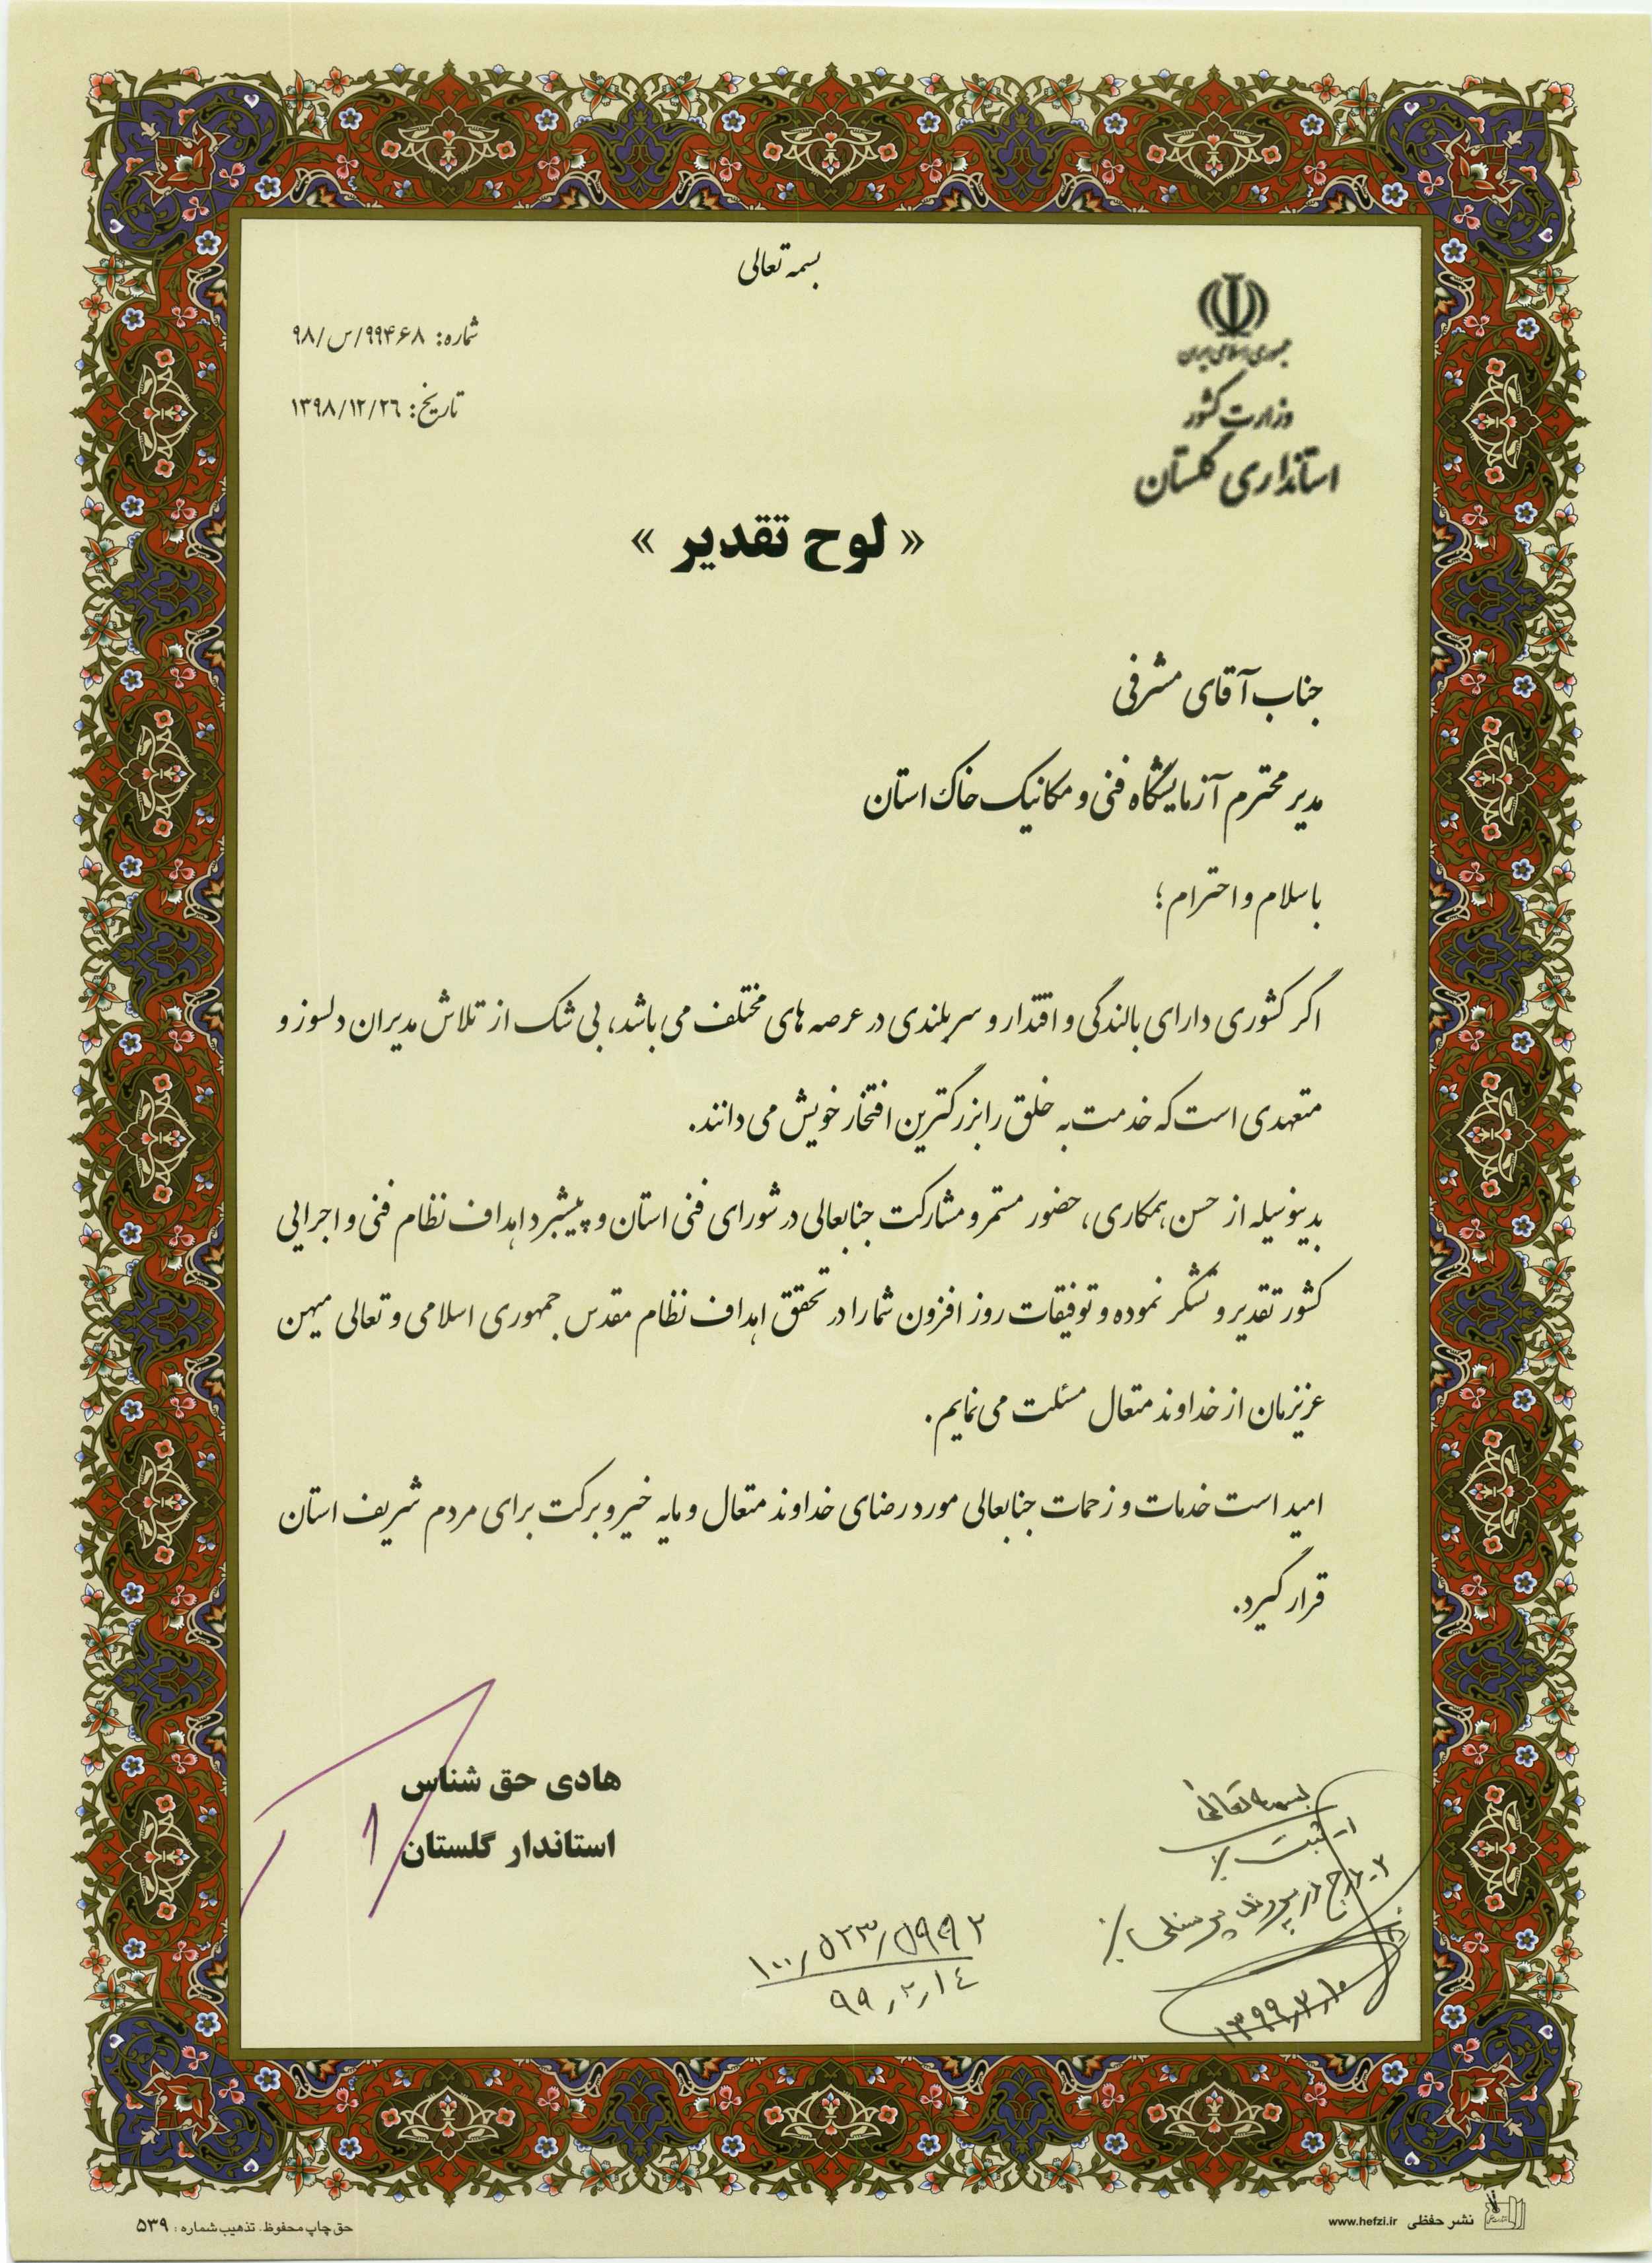 بسمه تعالی
جمهوری اسلامی ایران
وزارت کشور
استانداری گلستان
شماره: ۹۹۴۶۸/س/۹۸
تاریخ: ۱۳۹۸/۱۲/۲۶
« لوح تقدیر »
جناب آقای مشرفی
مدیر محترم آزمایشگاه فنی و مکانیک خاک استان
با سلام و احترام ؛
اگر کشوری دارای بالندگی و اقتدار و سربلندی در عرصه های مختلف می باشد، بی شک از تلاش مدیران دلسوز و
متعهدی است که خدمت به خلق را بزرگترین افتخار خویش می دانند.
بدینوسیله از حسن همکاری، حضور مستمر و مشارکت جنابعالی در شورای فنی استان و پیشبرد اهداف نظام فنی و اجرایی
کشور تقدیر و تشکر نموده و توفیقات روز افزون شما را در تحقق اهداف نظام مقدس جمهوری اسلامی و تعالی میهن
عزیزمان از خداوند متعال مسئلت می نمایم.
امید است خدمات و زحمات جنابعالی مورد رضای خداوند متعال و مایه خیر و برکت برای مردم شریف استان
قرار گیرد.
هادی حق شناس
استاندار گلستان
بسمه تعالی
۱- ثبت
۲- درج در پرونده پرسنلی
۱۳۹۹/۲/۱۰
۱۰۰/۵۲۳/۵۹۹۲
۹۹/۲/۱۴
نشر حفظی www.hefzi.ir
حق چاپ محفوظ. تذهیب شماره : ۵۳۹